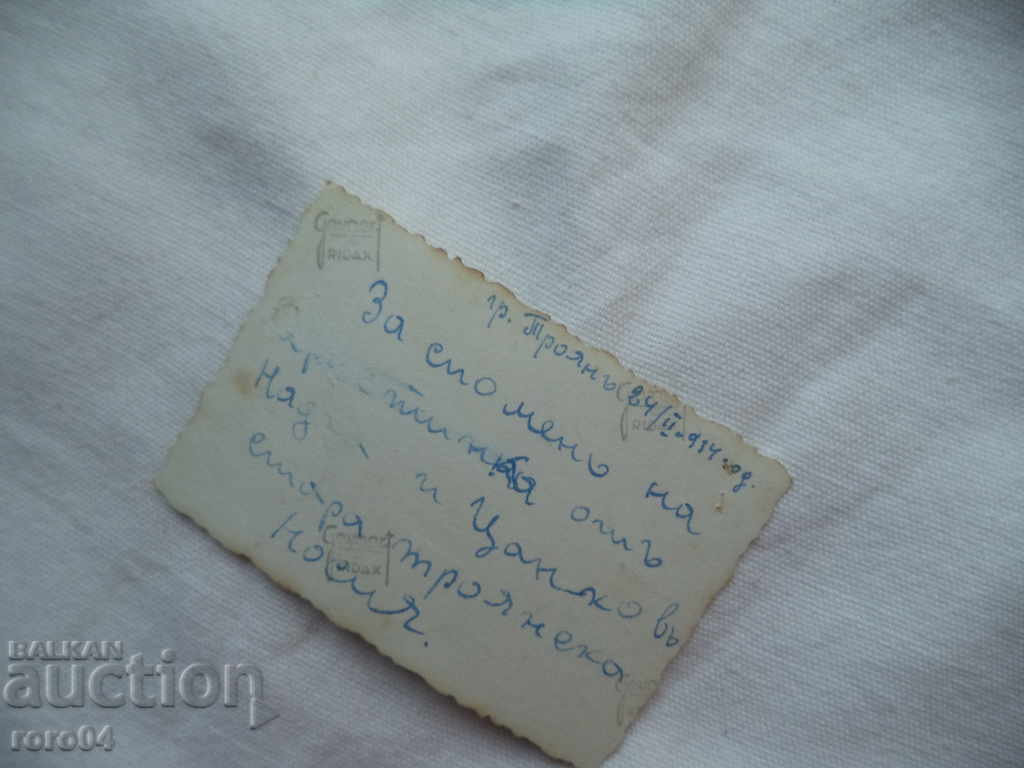 гр. Троянъ 24/II-934 год.
За споменъ на
отъ
и Цанковъ
стара троянска
носия.
Gevaert
RIDAX
RIDAX
Gevaert
RIDAX
BALKAN
auction
roro04